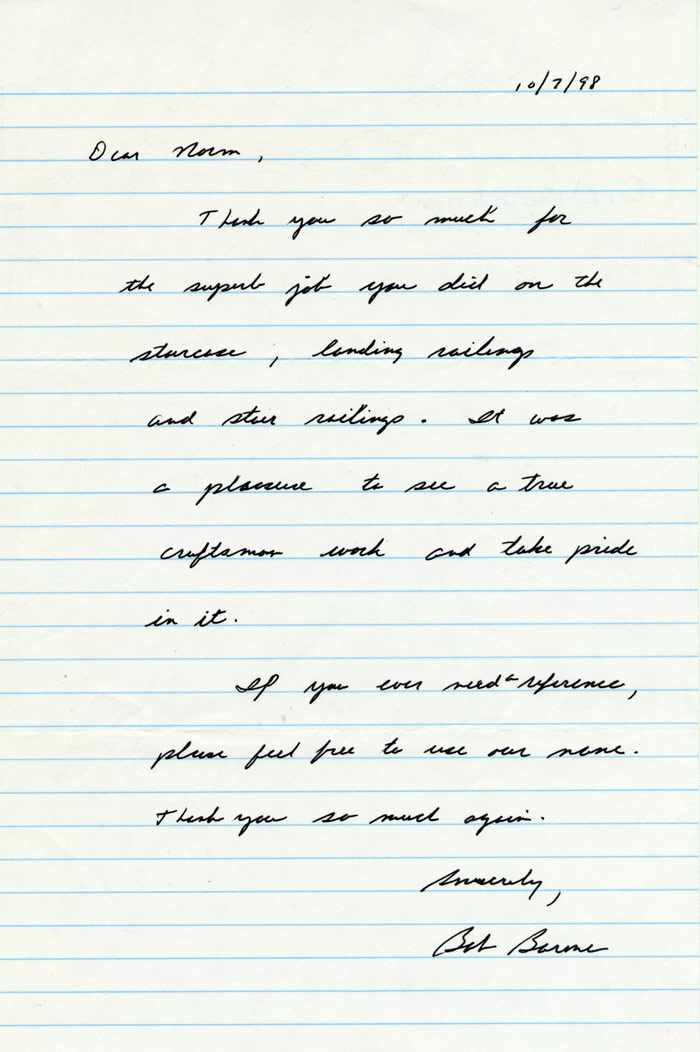 10/7/98
Dear Norm,
Thank you so much for
the superb job you did on the
staircase, landing railings
and stair railings. It was
a pleasure to see a true
craftsman work and take pride
in it.
If you ever need a reference,
please feel free to use our name.
Thank you so much again.
Sincerely,
Bob Barone